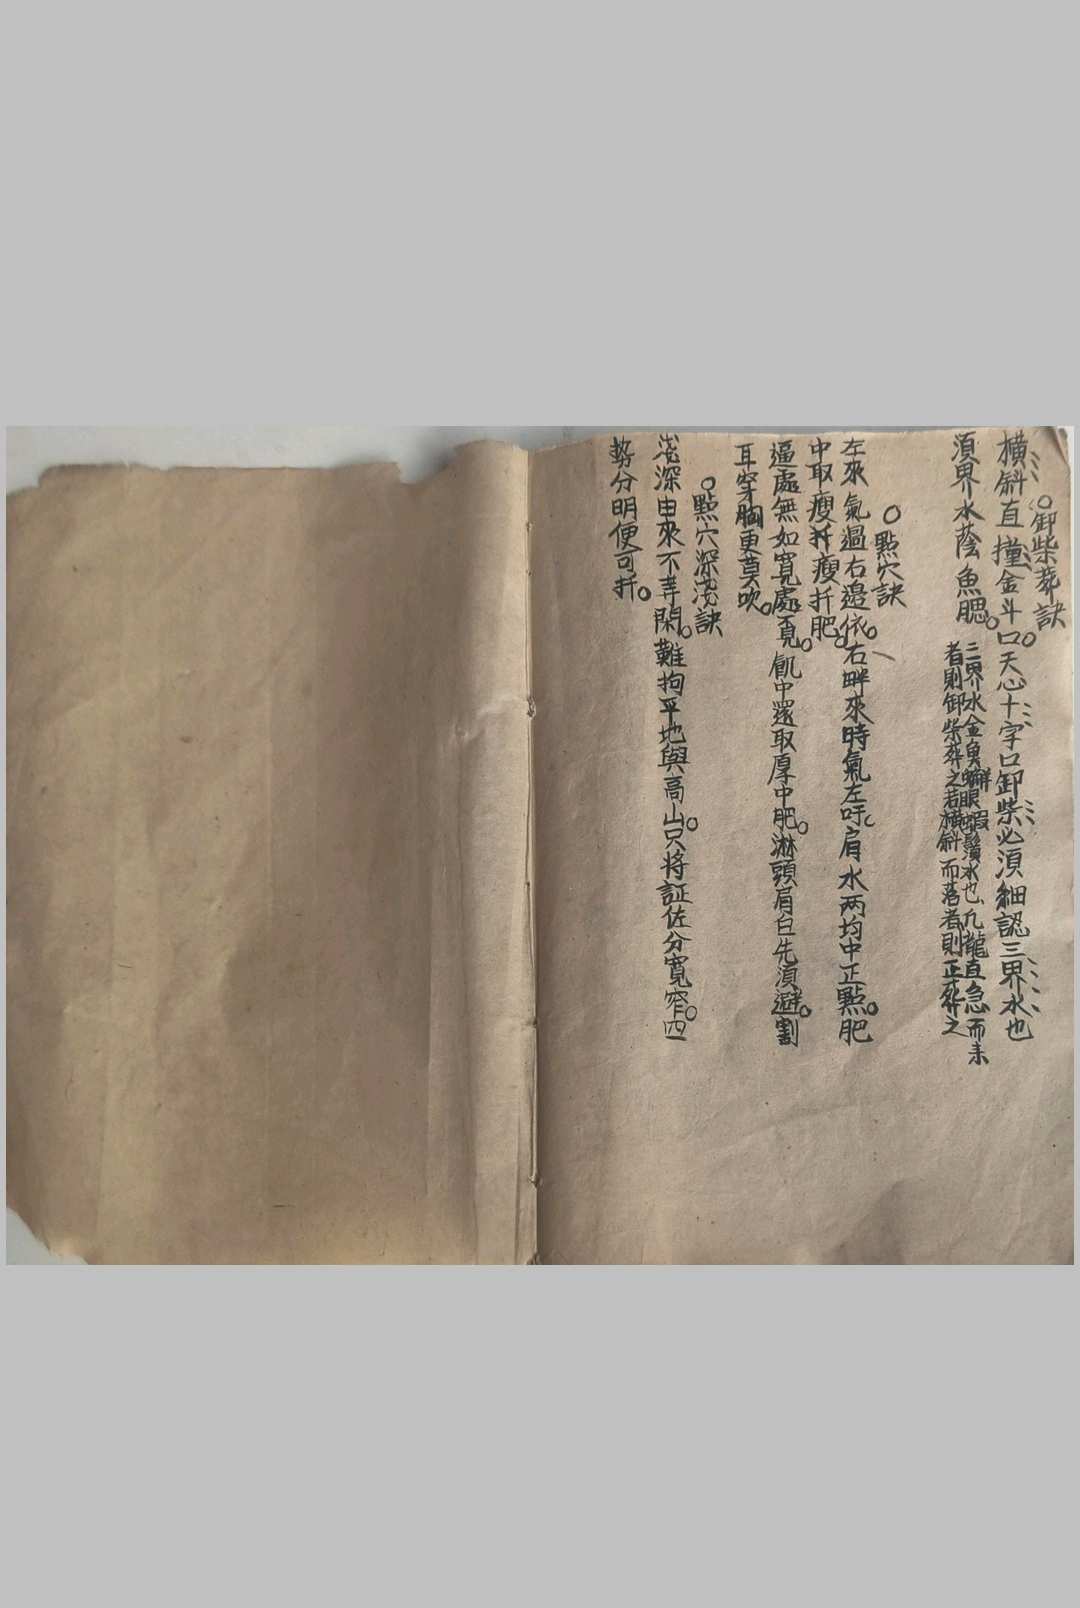 ○卸柴葬訣
橫斜直撞金斗口○天心十字口卸柴必須細認三界水也
須界水蔭魚腮○
三界水金魚蠏眼蝦鬚水也凢龍直急而来
者則卸柴葬之若橫斜而落者則正葬之
○點穴訣
左來氣過右邉依○右畔來時氣左吁○肩水兩均中正點○肥
中取瘦瘦扦肥○
逼處無如寬處覔○飢中還取厚中肥○淋頭肩臼先須避○割
耳穿胸更莫吹○
○點穴深淺訣
淺深由來不等閑○難拘平地與高山○只将証佐分寬窄○四
勢分明便可扦○